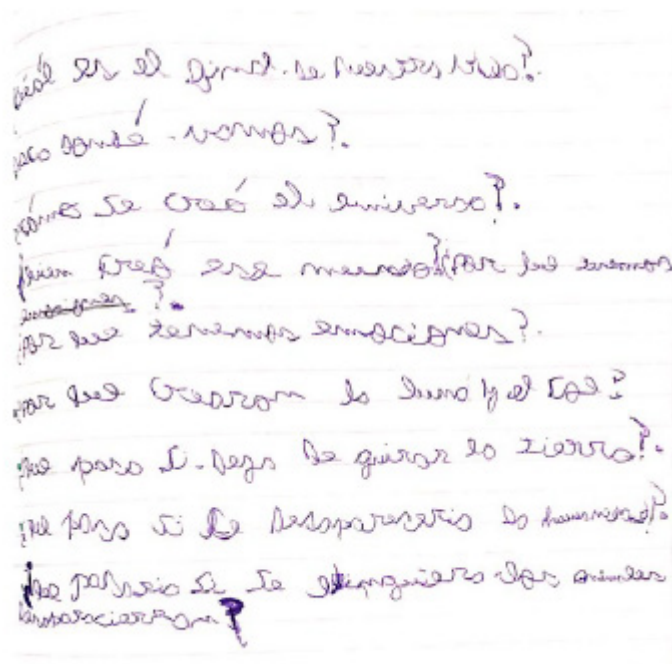 cuál es el final de nuestra vida?.
para donde vamos?.
cómo se creó el universo?.
quien creó ese mundo? por que tenemos
emociones?.
por que tenemos emociones?.
por que crearon la luna y el sol?
que pasa si deja de girar la tierra?.
que pasa si se desapareceria la humanidad?.
que pasaria si se los animales